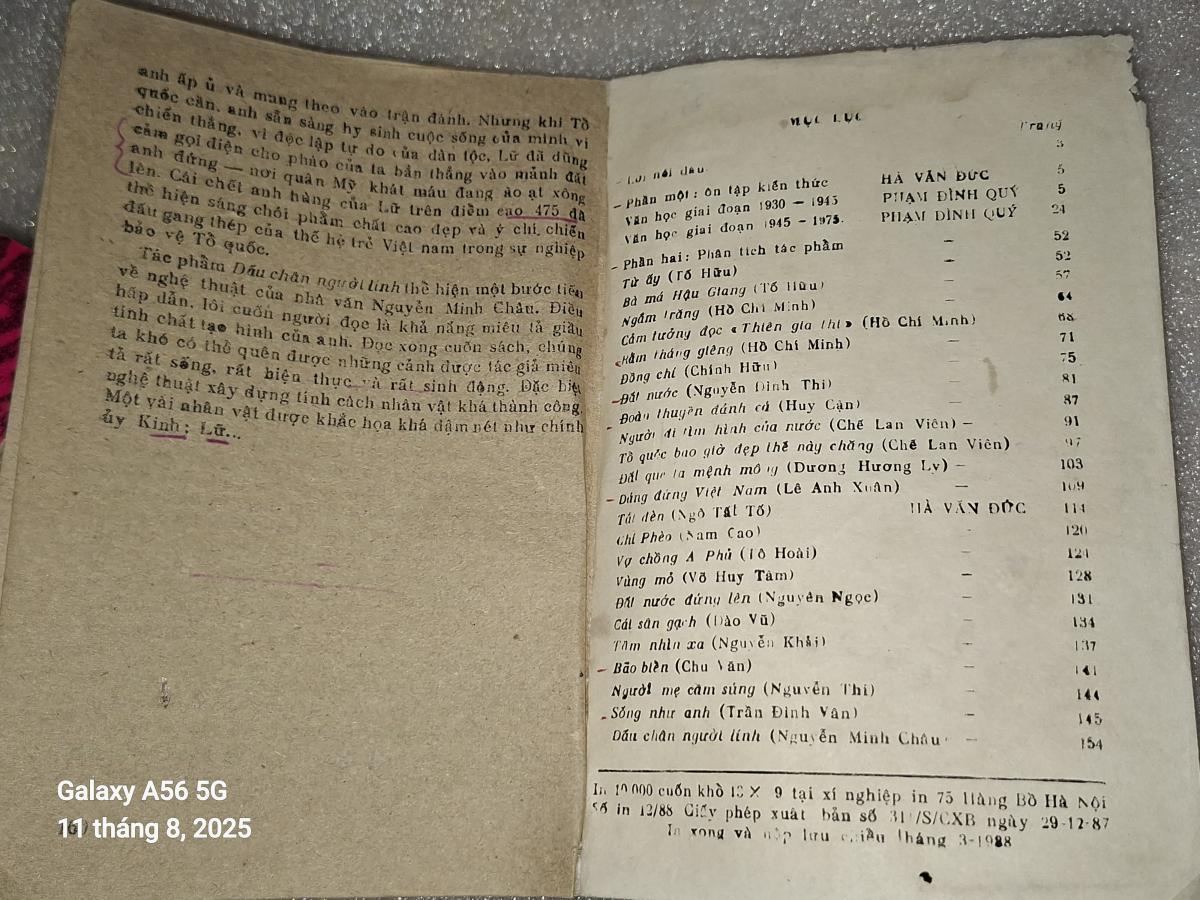 anh ấp ủ và mang theo vào trận đánh. Nhưng khi Tổ
quốc cần, anh sẵn sàng hy sinh cuộc sống của mình vì
chiến thắng, vì độc lập tự do của dân tộc, Lữ đã dũng
cảm gọi điện cho pháo của ta bắn thẳng vào mảnh đất
anh đứng — nơi quân Mỹ khát máu đang ào ạt xông
lên. Cái chết anh hùng của Lữ trên điểm cao 475 đã
thể hiện sáng chói phẩm chất cao đẹp và ý chí chiến
đấu gang thép của thế hệ trẻ Việt nam trong sự nghiệp
bảo vệ Tổ quốc.
Tác phẩm Dấu chân người lính thể hiện một bước tiến
về nghệ thuật của nhà văn Nguyễn Minh Châu. Điều
hấp dẫn, lôi cuốn người đọc là khả năng miêu tả giầu
tính chất tạo hình của anh. Đọc xong cuốn sách, chúng
ta khó có thể quên được những cảnh được tác giả miêu
tả rất sống, rất hiện thực và rất sinh động. Đặc biệt
nghệ thuật xây dựng tính cách nhân vật khá thành công.
Một vài nhân vật được khắc họa khá đậm nét như chính
ủy Kinh; Lữ...
MỤC LỤC
Trang
– Lời nói đầu. 3
– Phần một: ôn tập kiến thức HÀ VĂN ĐỨC 5
Văn học giai đoạn 1930 — 1945 PHẠM ĐÌNH QUÝ 5
Văn học giai đoạn 1945 - 1975. PHẠM ĐÌNH QUÝ 24
– Phần hai: Phân tích tác phẩm – 52
Từ ấy (Tố Hữu) – 52
Bà má Hậu Giang (Tố Hữu) 57
Ngắm trăng (Hồ Chí Minh) 64
Cảm tưởng đọc «Thiên gia thi» (Hồ Chí Minh) 68
Rằm tháng giêng (Hồ Chí Minh) 71
Đồng chí (Chính Hữu) 75
Đất nước (Nguyễn Đình Thi) 81
Đoàn thuyền đánh cá (Huy Cận) 87
Người đi tìm hình của nước (Chế Lan Viên) – 91
Tổ quốc bao giờ đẹp thế này chăng (Chế Lan Viên) 97
Đất quê ta mệnh mông (Dương Hương Ly) – 103
Dáng đứng Việt Nam (Lê Anh Xuân) – 109
Tắt đèn (Ngô Tất Tố) HÀ VĂN ĐỨC 114
Chí Phèo (Nam Cao) - 120
Vợ chồng A Phủ (Tô Hoài) – 124
Vùng mỏ (Võ Huy Tâm) – 128
Đất nước đứng lên (Nguyên Ngọc) – 131
Cái sân gạch (Đào Vũ) – 134
Tầm nhìn xa (Nguyễn Khải) – 137
– Bão biển (Chu Văn) – 141
Người mẹ cầm súng (Nguyễn Thi) – 144
Sống như anh (Trần Đình Vân) – 145
Dấu chân người lính (Nguyễn Minh Châu – 154
In 10 000 cuốn khổ 13 × 9 tại xí nghiệp in 75 Hàng Bồ Hà Nội
Số in 12/88 Giấy phép xuất bản số /S/CXB ngày 29-12-87
In xong và nộp lưu chiểu tháng 3-1988
Galaxy A56 5G
11 tháng 8, 2025